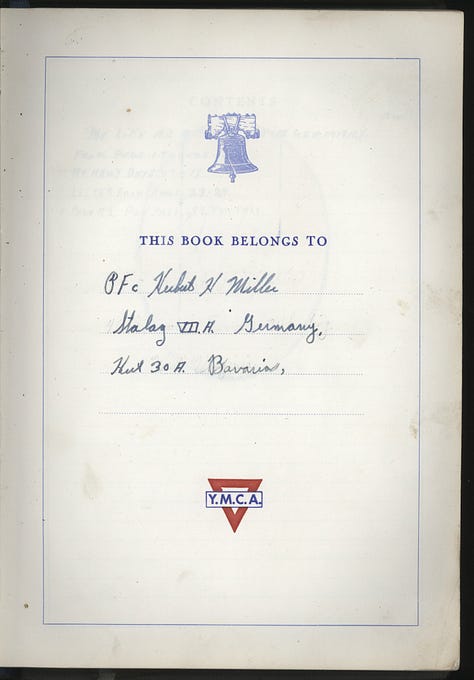 THIS BOOK BELONGS TO
PFc Herbert H Miller
Stalag VII.A. Germany,
Hut 30 A. Bavaria,
Y.M.C.A.